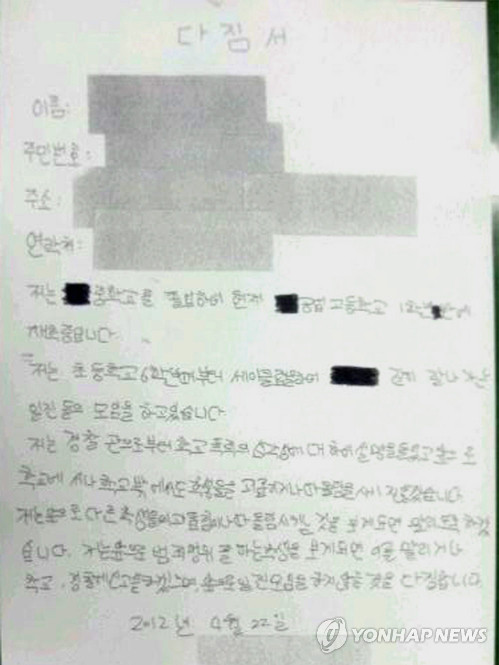 다짐서
이름:
주민번호:
주소:
연락처:
저는 중학교를 졸업하여 현재 공업고등학교 1학년 반에
재학중입니다.
저는 초등학교 6학년때부터 까지 잘나가는
일진들의 모임을 하고있습니다.
저는 경찰관으로부터 학교폭력의 심각성에 대하여 설명을들었고 앞으로
학교에서나 학교밖에서도 학생들을 괴롭히거나 따돌림을
저는앞으로 다른학생들이괴롭힘이나따돌림시키는 것을 보게되면 말리도록 하겠
습니다. 저는앞으로 범죄행위를 하는학생을 보게되면 이를 말리거나
학교, 경찰에신고를하겠으며, 앞으로일진모임을하지않을것을 다짐합니다.
2012년 4월 22일
YONHAP NEWS